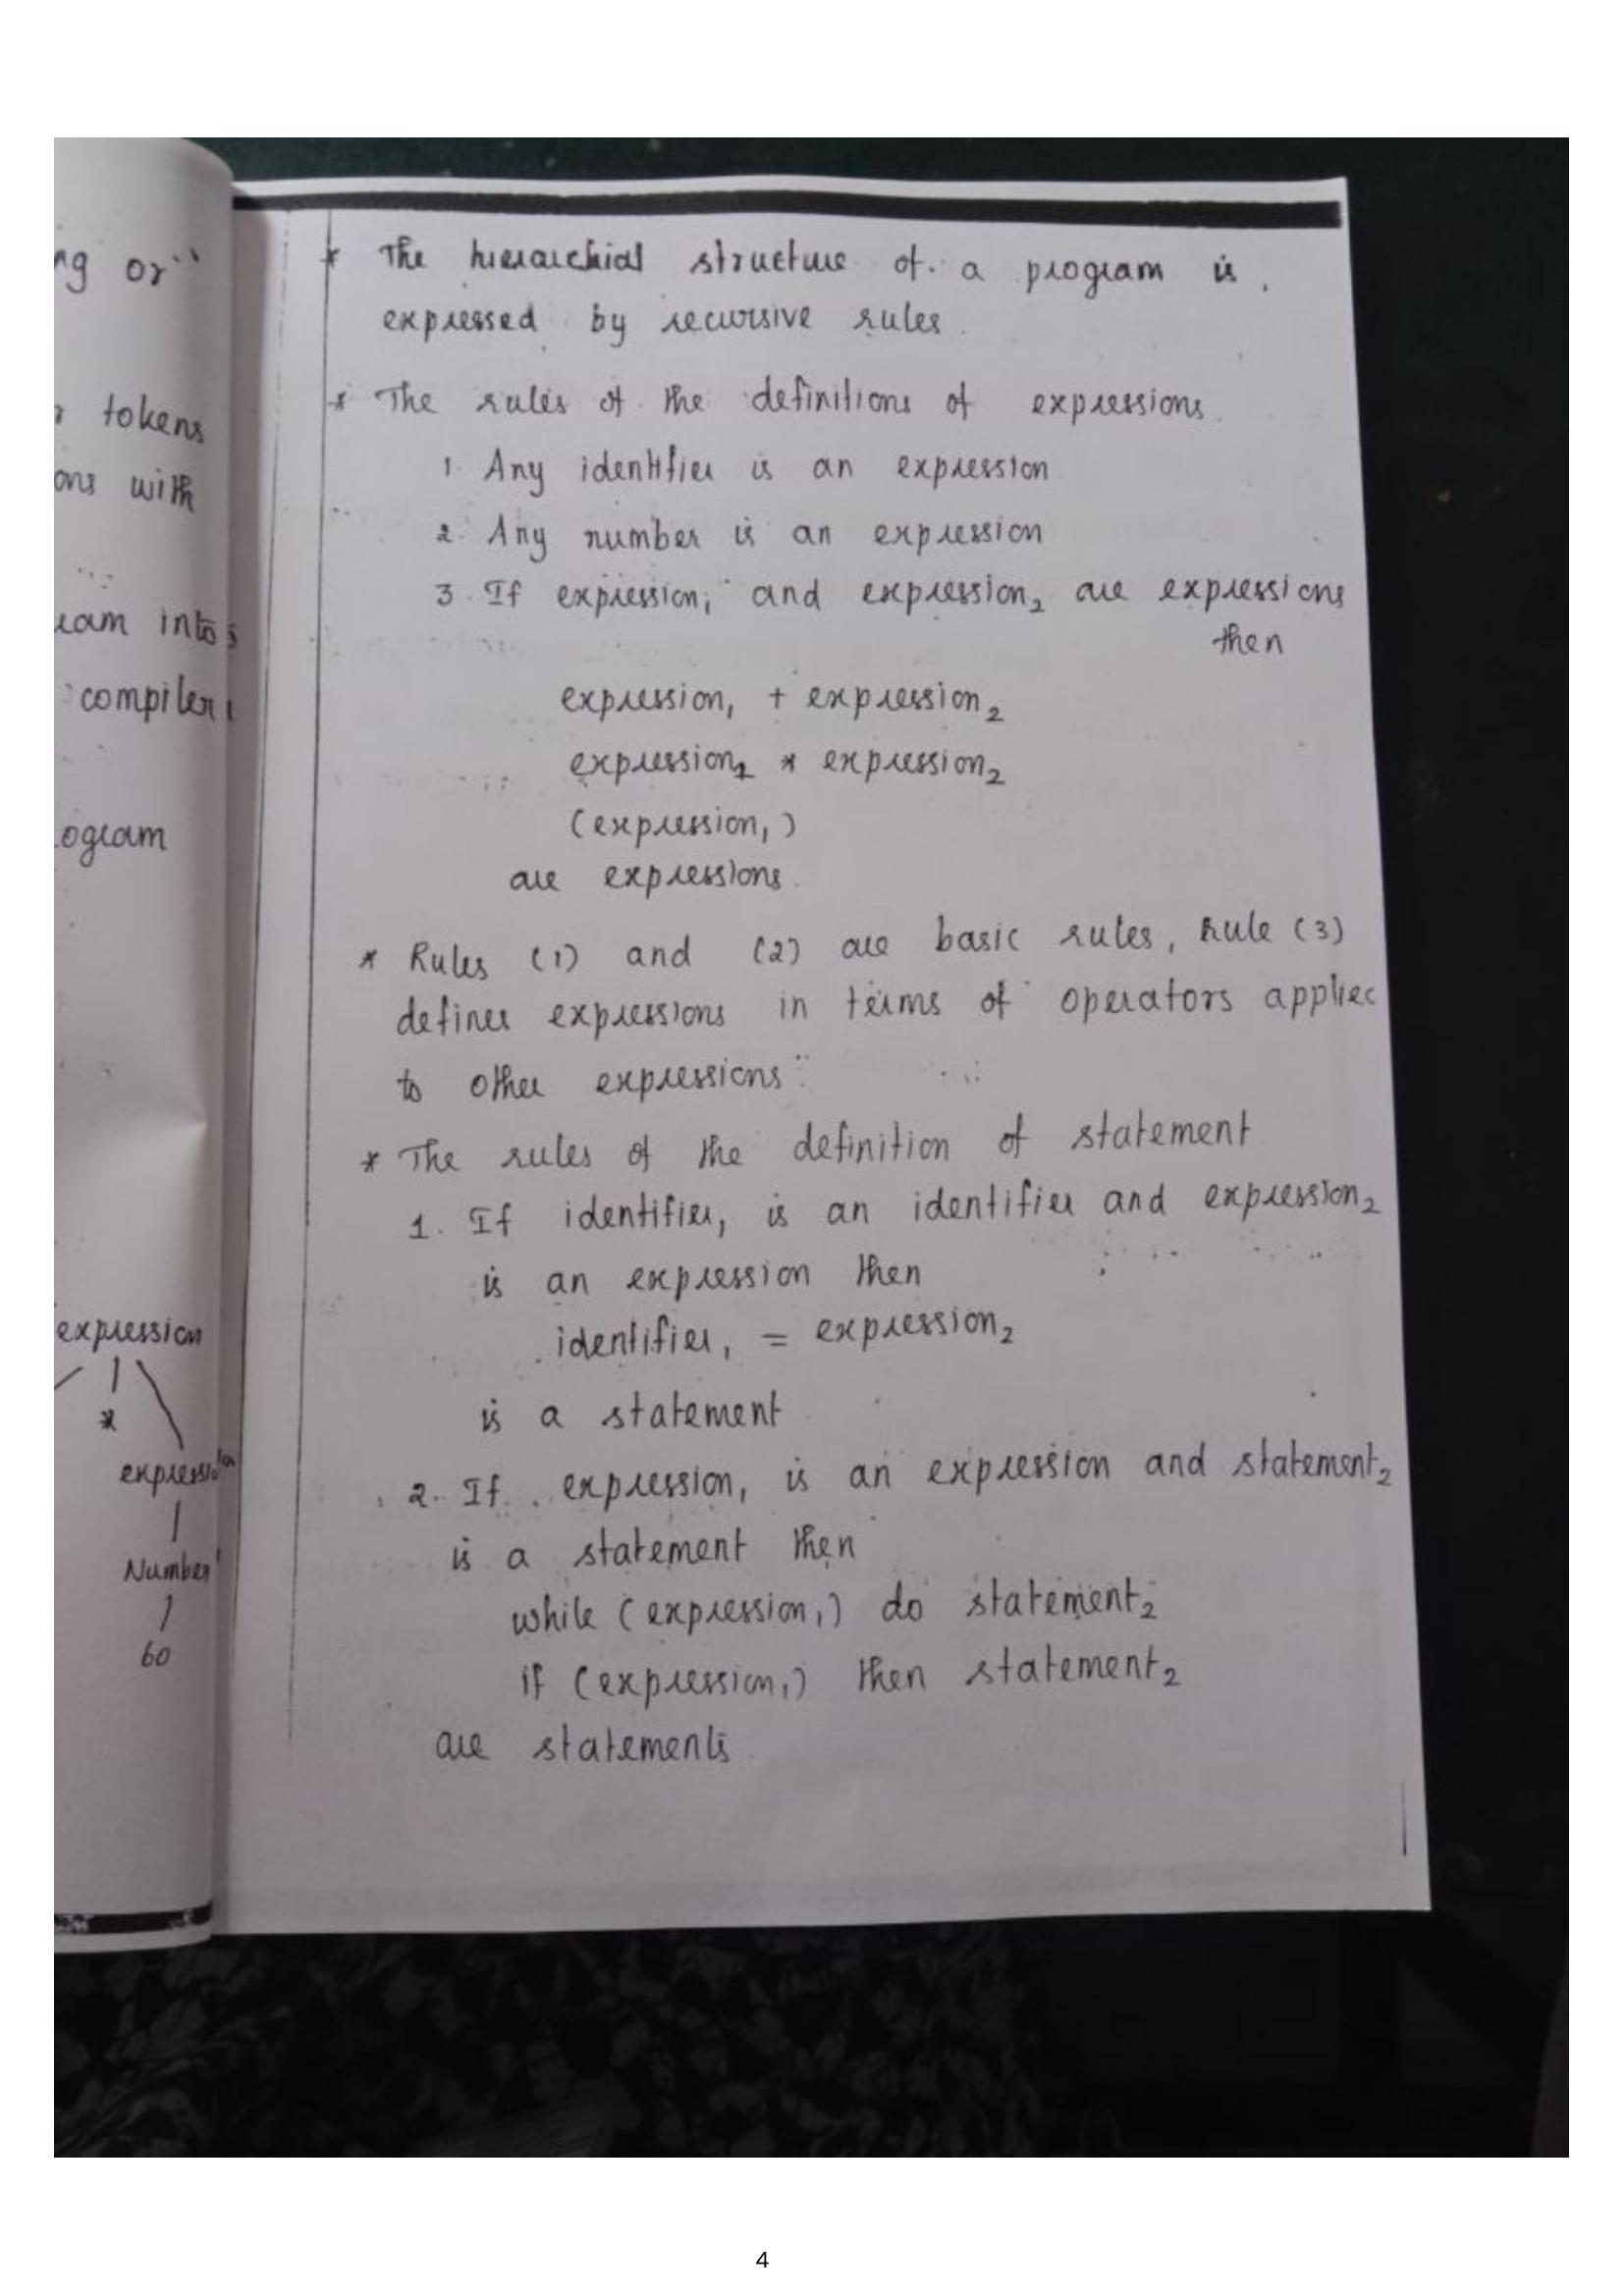 ng or
tokens
ons with
ram into
compiler
ogram
expression
*
expression
Number
60
* The hierarchial structure of a program is
expressed by recursive rules.
* The rules of the definitions of expressions.
1. Any identifier is an expression
2. Any number is an expression
3. If expression₁ and expression₂ are expressions
then
expression₁ + expression₂
expression₁ * expression₂
(expression₁)
are expressions.
* Rules (1) and (2) are basic rules, Rule (3)
defines expressions in terms of operators applied
to other expressions.
* The rules of the definition of statement
1. If identifier₁ is an identifier and expression₂
is an expression then
identifier₁ = expression₂
is a statement
2. If expression₁ is an expression and statement₂
is a statement then
while (expression₁) do statement₂
if (expression₁) then statement₂
are statements.
4